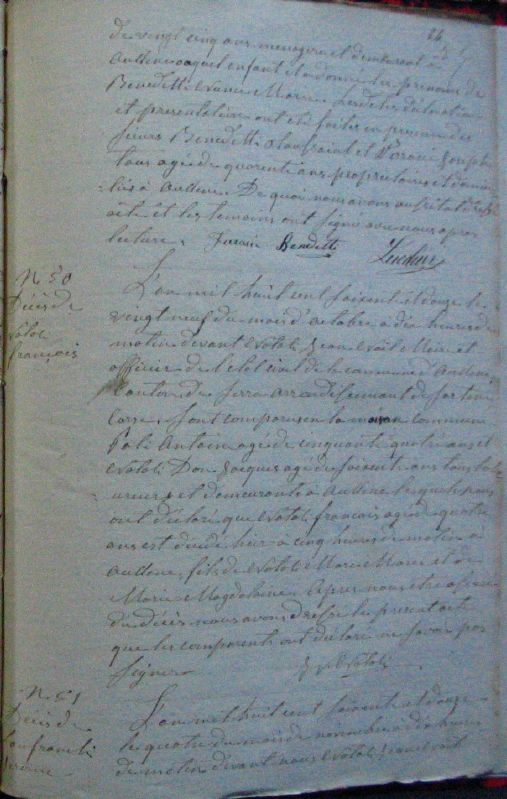 26
de vingt cinq ans menagere et demeurant à
Aullene auquel enfant il a donné les prenoms de
Benedetti Marie les dites déclaration
et presentation ont été faites en presence des
sieurs Benedetti et Joseph
tous agé de quarente ans proprietaires et domici
liés à Aullene De quoi nous avons
acte et les temoins ont signé avec nous apres
lecture. Benedetti
N° 50
Décès de
Natali
français
L'an mil huit cent soixante et douze le
vingt neuf du mois d'octobre à dix heures du
matin devant Natali Jean Maire et
officier de l'etat civil de la commune d'Aullene
Canton de Serra arrondissement de Sartene
Corse, sont comparus en la maison commune
Poli Antoine agé de cinquante quatre ans et
Natali Don Jacques agé de soixante ans tous
et demeurants à Aullene lesquels nous
ont déclaré que Natali français agé de quatre
ans est décédé hier à cinq heures du matin à
Aullene, fils de Natali Marc Marie et de
Marie Magdeleine Apres nous etre assuré
du décès nous avons dressé le present acte
que les comparants ont déclaré ne savoir pas
signer
Natali
N° 51
Décès de
L'an mil huit cent soixante et douze
le quatre du mois de novembre à dix heures
du matin devant nous Natali Jean